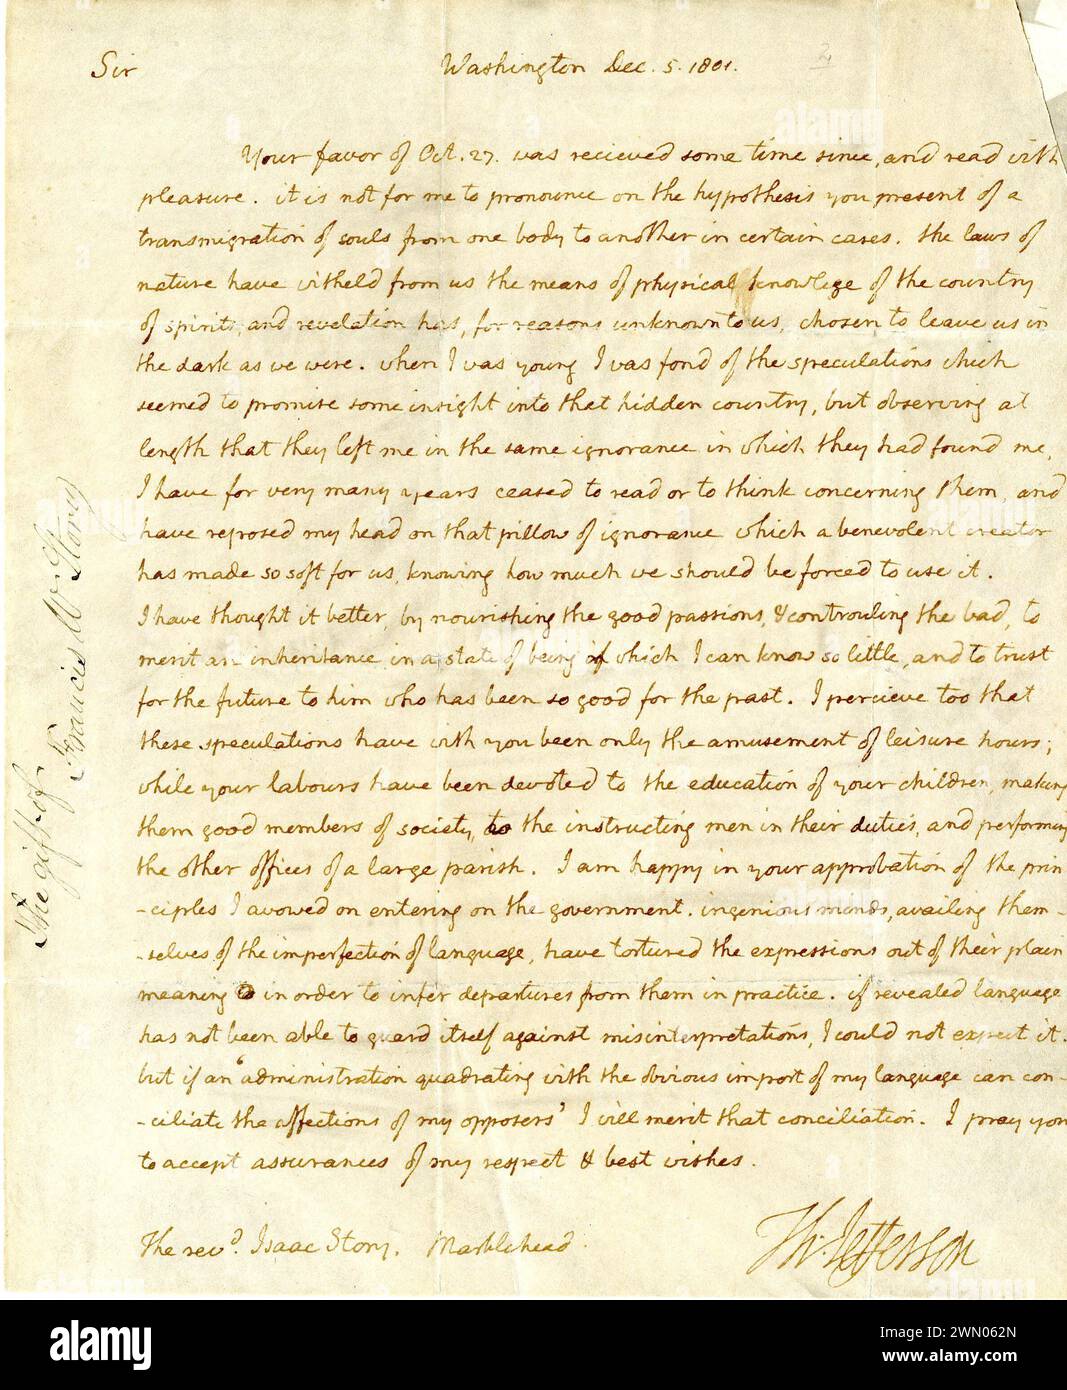 Sir
Washington Dec. 5. 1801.
Your favor of Oct. 27. was recieved some time since, and read with
pleasure. it is not for me to pronounce on the hypothesis you present of a
transmigration of souls from one body to another in certain cases. the laws of
nature have witheld from us the means of physical knowlege of the country
of spirits, and revelation has, for reasons unknown to us, chosen to leave us in
the dark as we were. when I was young I was fond of the speculations which
seemed to promise some insight into that hidden country, but observing at
length that they left me in the same ignorance in which they had found me,
I have for very many years ceased to read or to think concerning them, and
have reposed my head on that pillow of ignorance which a benevolent creator
has made so soft for us, knowing how much we should be forced to use it.
I have thought it better, by nourishing the good passions, & controuling the bad, to
merit an inheritance in a state of being of which I can know so little, and to trust
for the future to him who has been so good for the past. I percieve too that
these speculations have with you been only the amusement of leisure hours;
while your labours have been devoted to the education of your children, making
them good members of society, to the instructing men in their duties, and performing
the other offices of a large parish. I am happy in your approbation of the prin
-ciples I avowed on entering on the government. ingenious minds, availing them-
-selves of the imperfection of language, have tortured the expressions out of their plain
meaning in order to infer departures from them in practice. if revealed language
has not been able to guard itself against misinterpretations, I could not expect it.
but if an 'administration quadrating with the obvious import of my language can con-
-ciliate the affections of my opposers' I will merit that conciliation. I pray you
to accept assurances of my respect & best wishes.
Th: Jefferson
The revd. Isaac Story. Marblehead.
The gift of
Frances W Story
2
alamy
Image ID: 2WN062N
www.alamy.com